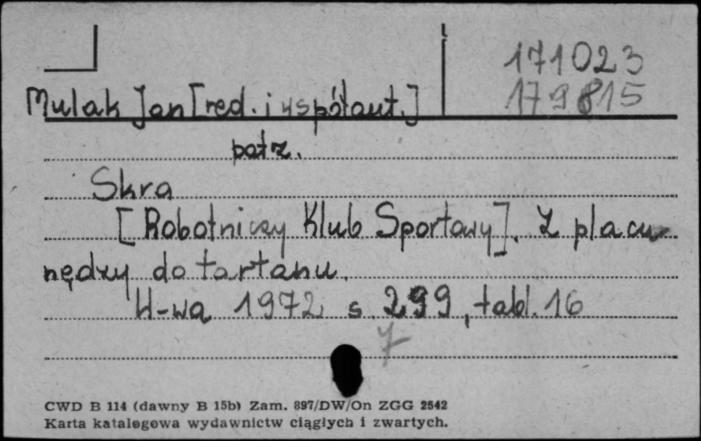 171023
179815
Mulak Jan [red. i współaut.]
patrz.
Skra
[Robotniczy Klub Sportowy]. Z placu
nędzy do tartanu.
W-wa 1972 s. 299, tabl. 16
7
CWD B 114 (dawny B 15b) Zam. 897/DW/On ZGG 2542
Karta katalogowa wydawnictw ciągłych i zwartych.